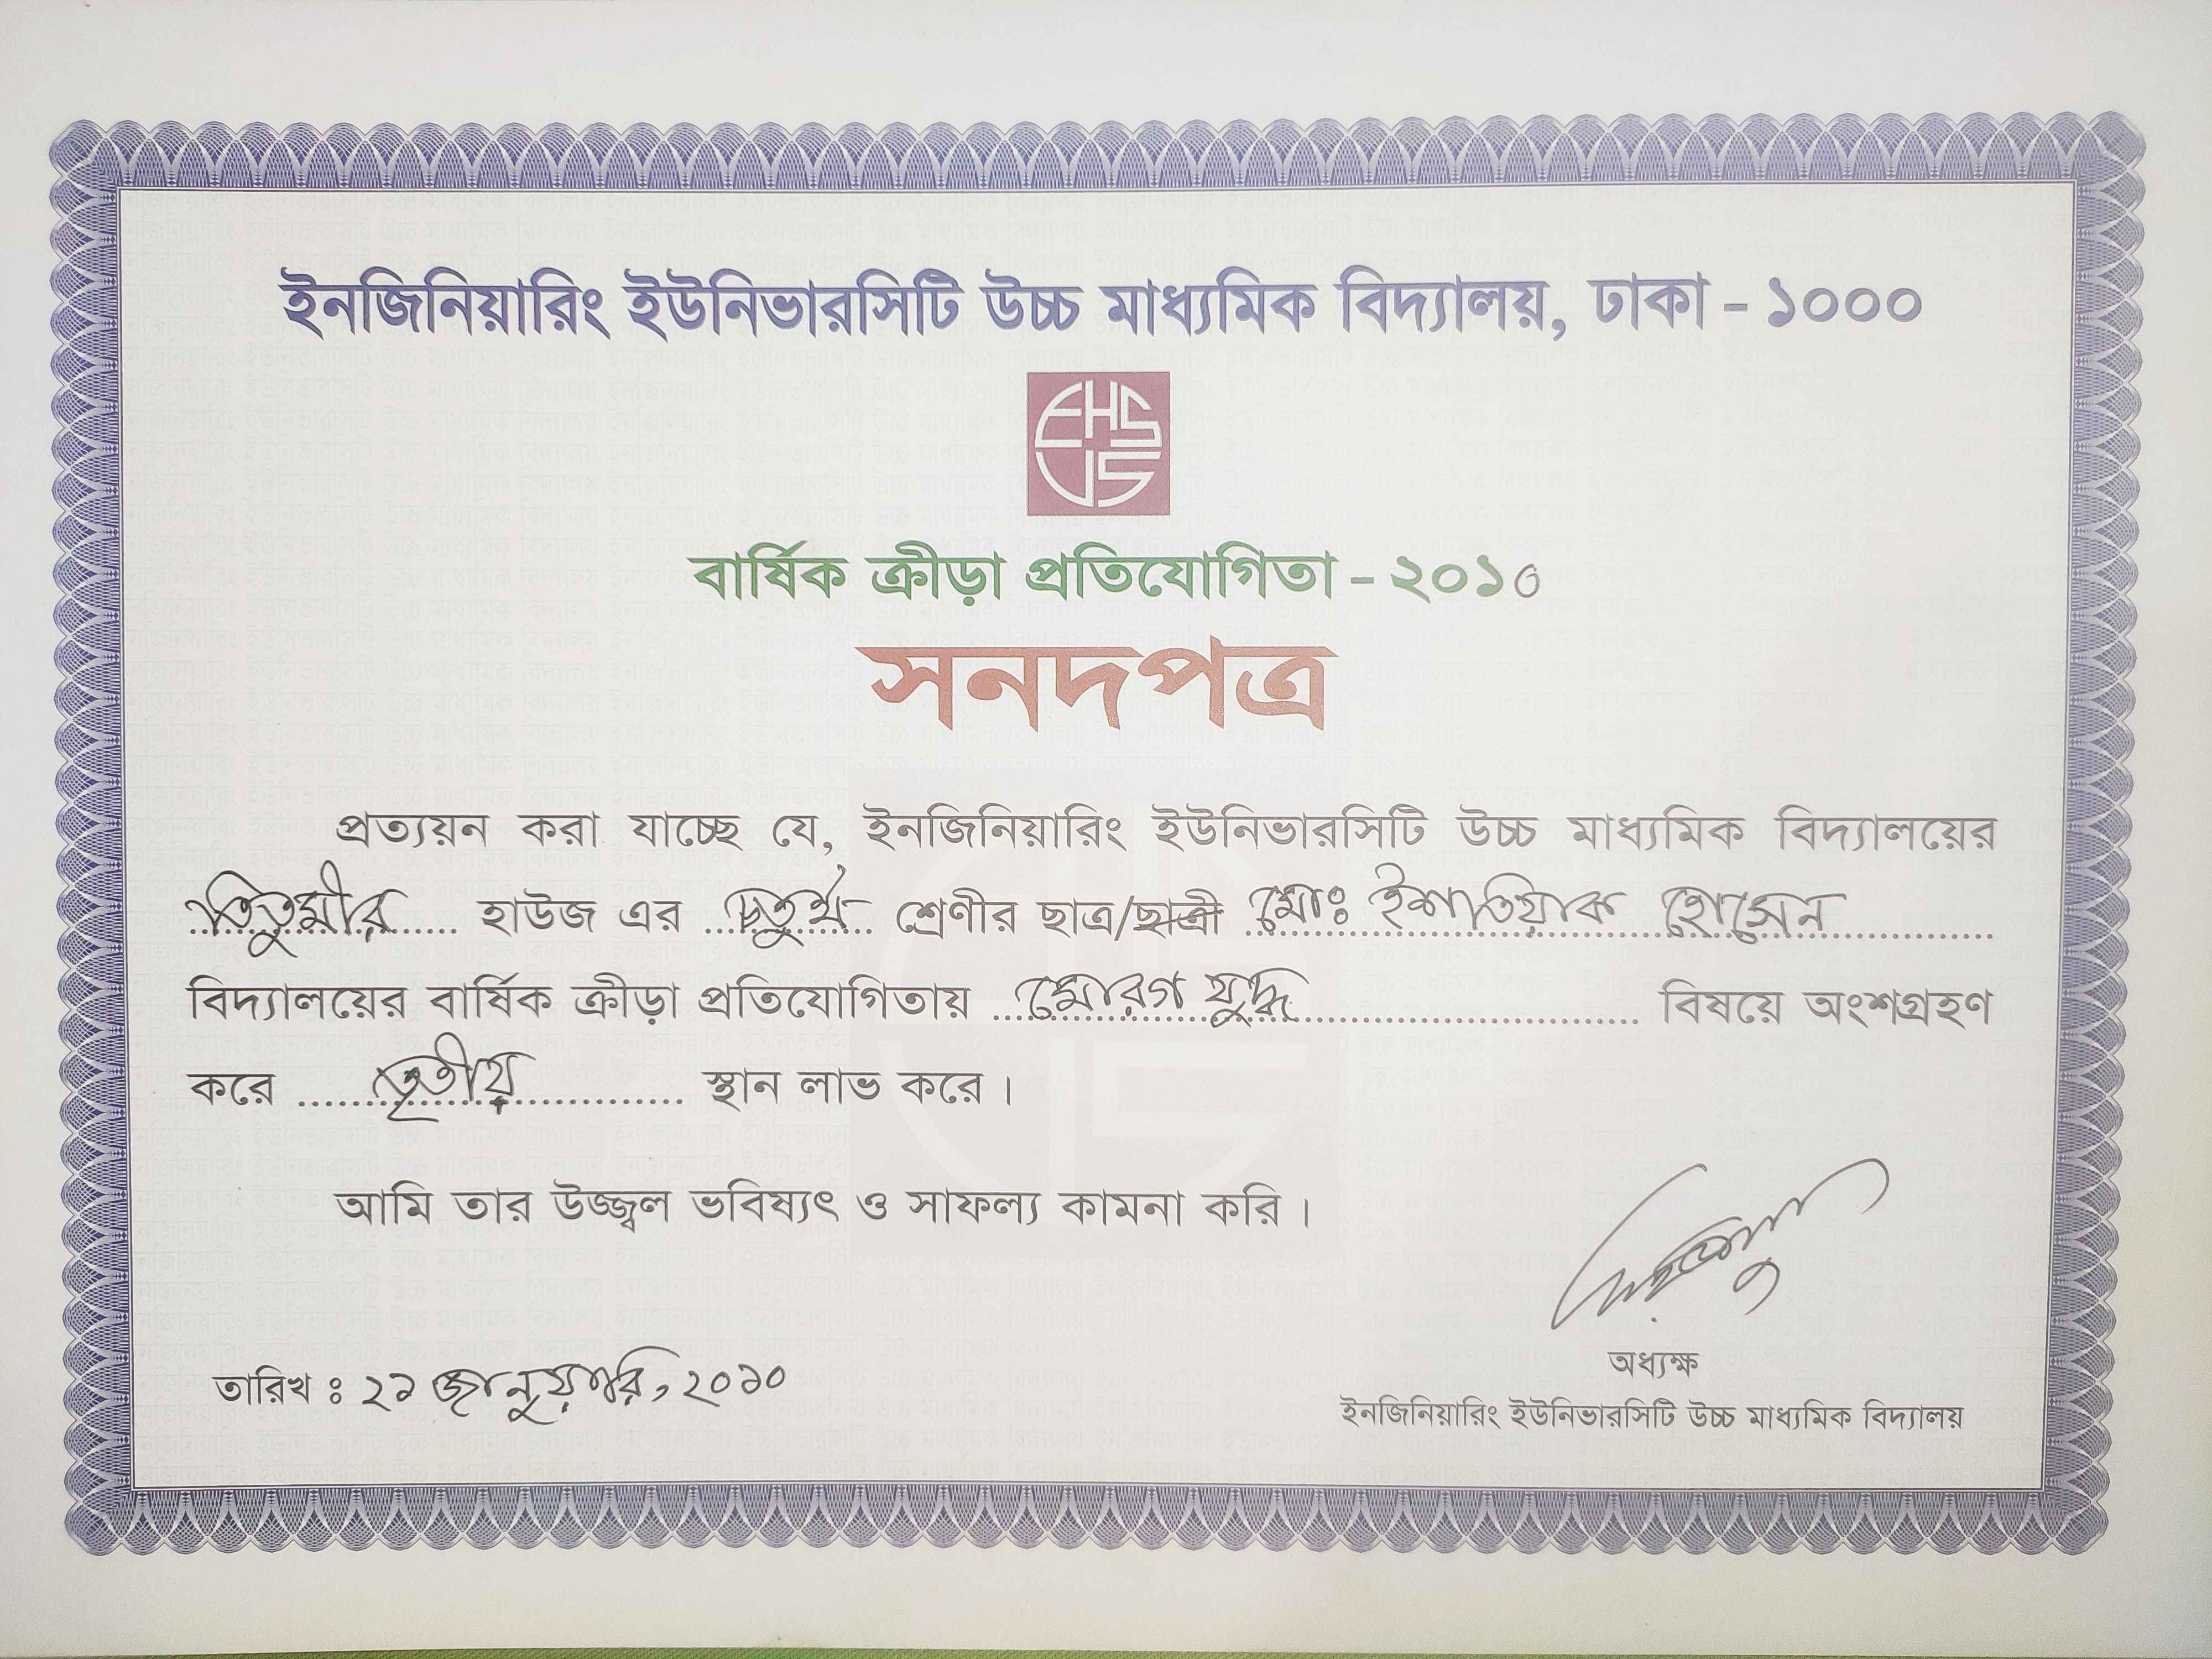 ইনজিনিয়ারিং ইউনিভারসিটি উচ্চ মাধ্যমিক বিদ্যালয়, ঢাকা - ১০০০
EHS
US
বার্ষিক ক্রীড়া প্রতিযোগিতা - ২০১০
সনদপত্র
প্রত্যয়ন করা যাচ্ছে যে, ইনজিনিয়ারিং ইউনিভারসিটি উচ্চ মাধ্যমিক বিদ্যালয়ের
তিতুমীর হাউজ এর চতুর্থ শ্রেণীর ছাত্র/ছাত্রী মোঃ ইশতিয়াক হোসেন
বিদ্যালয়ের বার্ষিক ক্রীড়া প্রতিযোগিতায় মোরগ যুদ্ধ বিষয়ে অংশগ্রহণ
করে তৃতীয় স্থান লাভ করে।
আমি তার উজ্জ্বল ভবিষ্যৎ ও সাফল্য কামনা করি।
তারিখ : ২১ জানুয়ারি, ২০১০
অধ্যক্ষ
ইনজিনিয়ারিং ইউনিভারসিটি উচ্চ মাধ্যমিক বিদ্যালয়